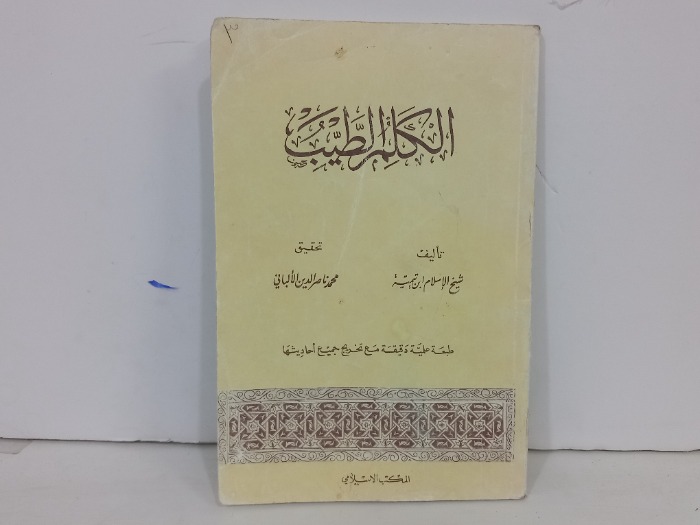 ٣
الكَلِمُ الطَّيِّبُ
تأليف
شيخ الإسلام ابن تيميّة
تحقيق
محمد ناصر الدين الألباني
طبعة علميّة دقيقة مع تخريج جميع أحاديثها
المكتب الإسلامي